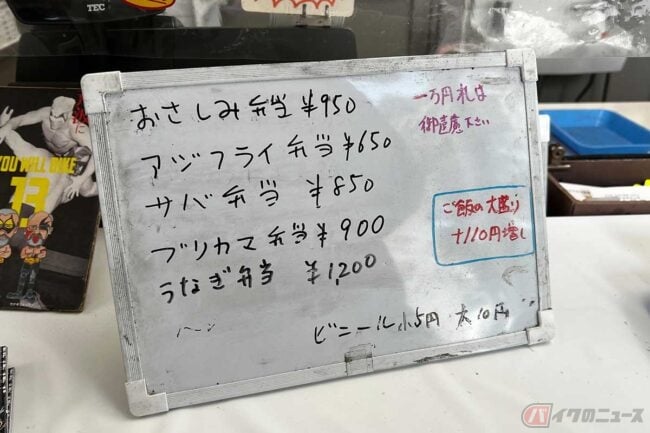 TEC
おさしみ弁当 ¥950
アジフライ弁当 ¥650
サバ弁当 ¥850
ブリカマ弁当 ¥900
うなぎ弁当 ¥1,200
一万円札は
御遠慮下さい
ご飯の大盛り
+110円増し
ビニール小5円 大10円
YOU WILL BIKE
13
バイクのニュース